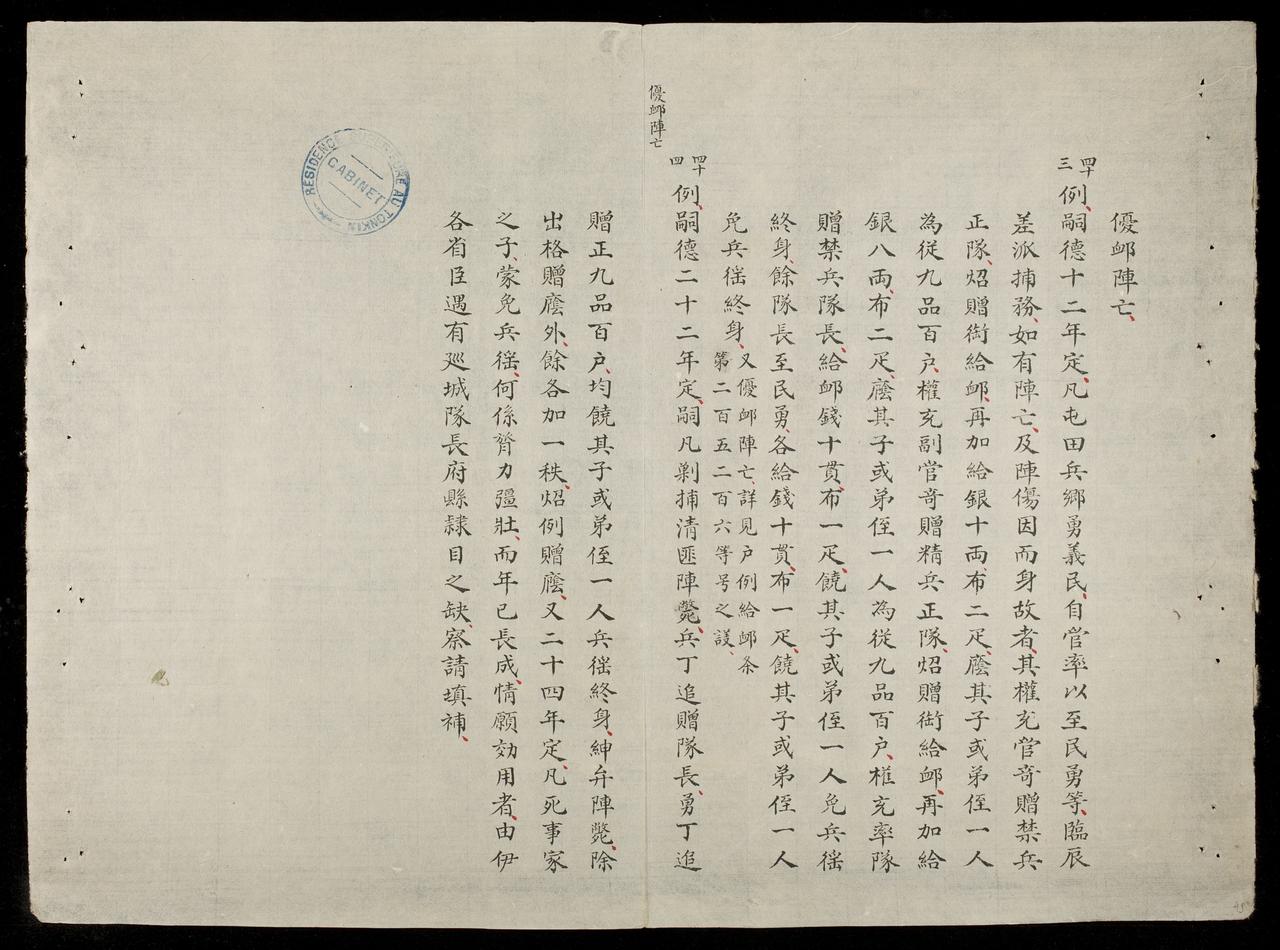 優衈陣亡、
四十三
例、嗣德十二年定、凡屯田兵鄉勇義民、自管率以至民勇等、臨辰
差派捕務、如有陣亡、及陣傷因而身故者、其權充管奇贈禁兵
正隊、炤贈銜給衈、再加給銀十両、布二疋、廕其子或弟侄一人
為從九品百户、權充副管奇贈精兵正隊、炤贈銜給衈、再加給
銀八両、布二疋、廕其子或弟侄一人為從九品百户、權充率隊
贈禁兵隊長、給衈錢十貫、布一疋、饒其子或弟侄一人免兵徭
終身、餘隊長至民勇、各給錢十貫、布一疋、饒其子或弟侄一人
免兵徭終身、
又優衈陣亡、詳見户例給衈条
第二百五二百六等号之議、
優衈陣亡
四十四
例、嗣德二十二年定、嗣凡剿捕清匪陣斃、兵丁追贈隊長、勇丁追
贈正九品百户、均饒其子或弟侄一人兵徭終身、紳弁陣斃、除
出格贈廕外、餘各加一秩、炤例贈廕、又二十四年定、凡死事家
之子、蒙免兵徭、何係膂力彊壯、而年已長成、情願効用者、由伊
各省臣遇有廵城隊長府縣隸目之缺、察請填補、
RESIDENCE SUPERIEURE AU TONKIN
CABINET